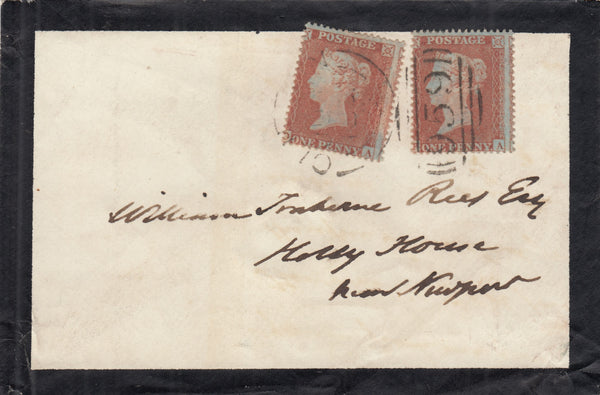 POSTAGE
ONE PENNY A
POSTAGE
ONE PENNY A
659
William Tonberne Rees Esq
Holly House
near Newport